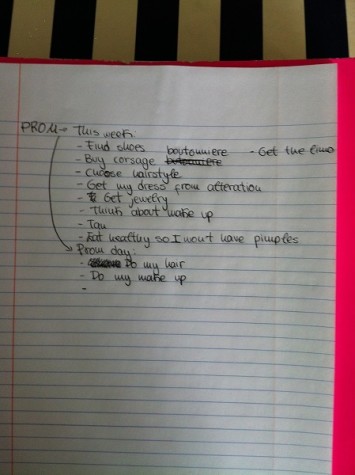 PROM → This week:
- Find shoes boutonniere - Get the limo
- Buy corsage boutonniere
- choose hairstyle
- Get my dress from alteration
- Get jewelry
- Think about make up
- Tan
- Eat healthy so I won't have pimples
Prom day:
- Do my hair
- Do my make up
-